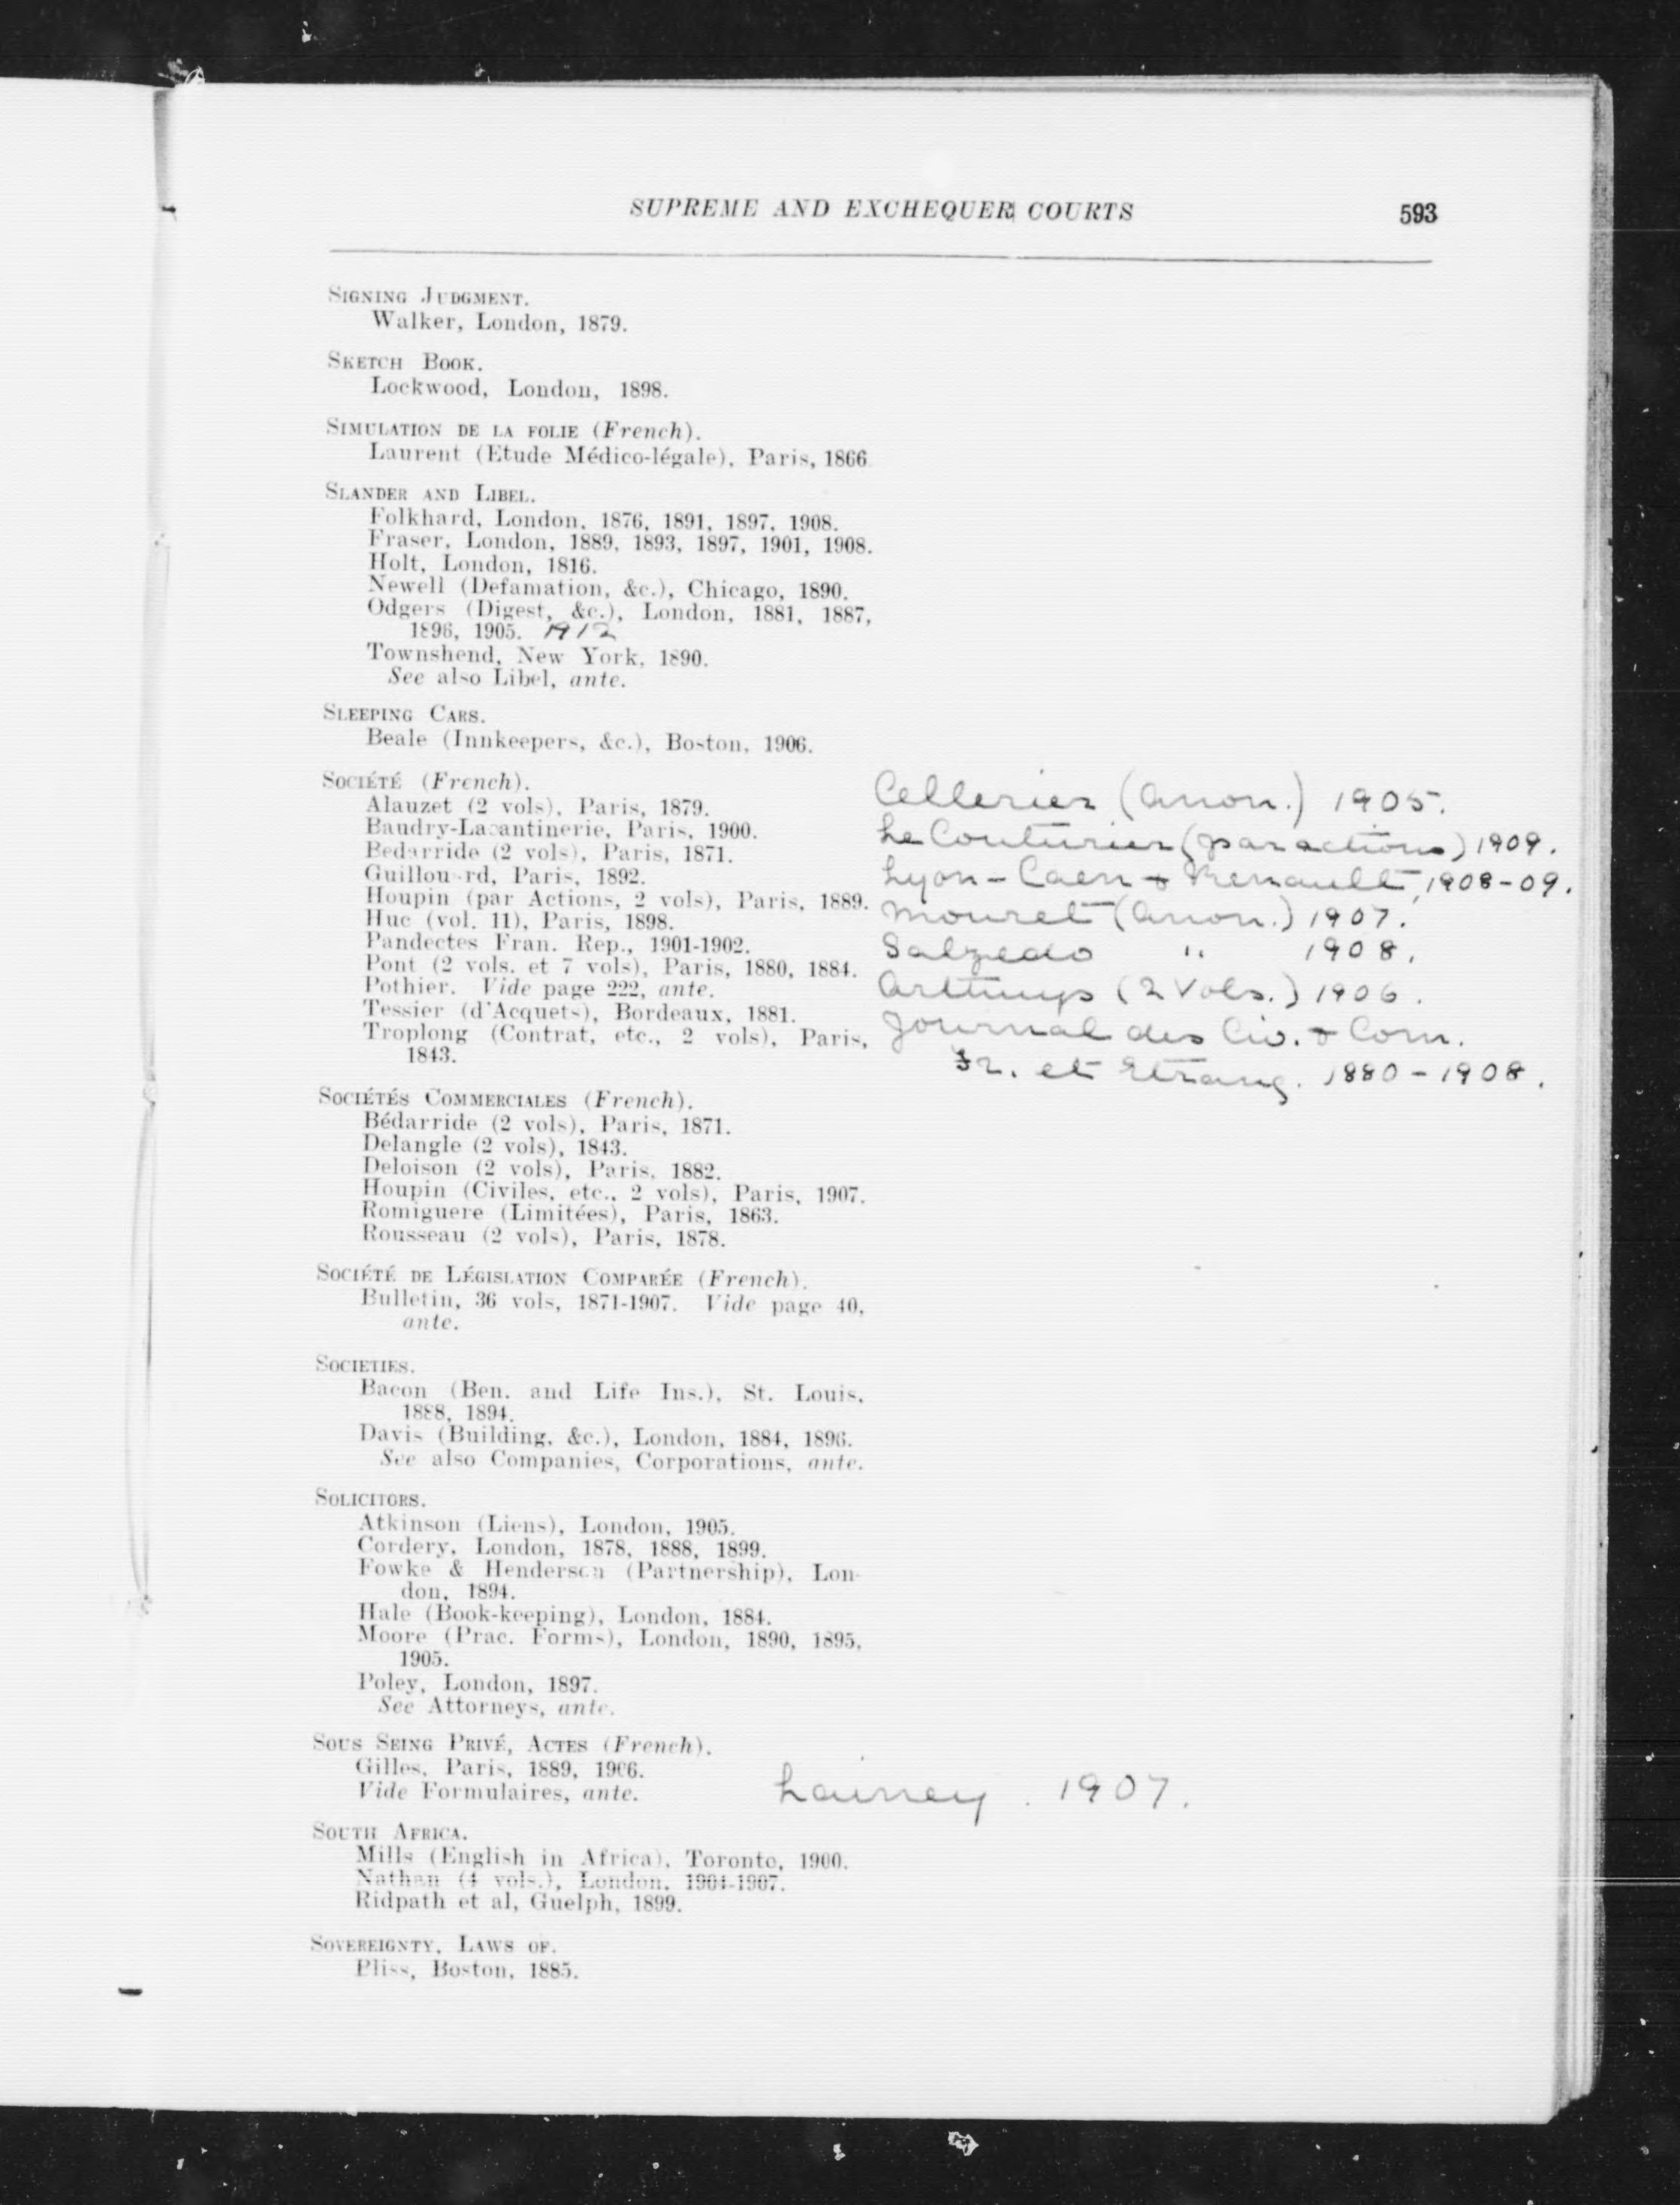 SUPREME AND EXCHEQUER COURTS 593
SIGNING JUDGMENT.
Walker, London, 1879.
SKETCH BOOK.
Lockwood, London, 1898.
SIMULATION DE LA FOLIE (French).
Laurent (Etude Médico-légale), Paris, 1866
SLANDER AND LIBEL.
Folkhard, London, 1876, 1891, 1897, 1908.
Fraser, London, 1889, 1893, 1897, 1901, 1908.
Holt, London, 1816.
Newell (Defamation, &c.), Chicago, 1890.
Odgers (Digest, &c.), London, 1881, 1887,
1896, 1905. 1912
Townshend, New York, 1890.
See also Libel, ante.
SLEEPING CARS.
Beale (Innkeepers, &c.), Boston, 1906.
SOCIÉTÉ (French).
Alauzet (2 vols), Paris, 1879.
Baudry-Lacantinerie, Paris, 1900.
Bedarride (2 vols), Paris, 1871.
Guillouard, Paris, 1892.
Houpin (par Actions, 2 vols), Paris, 1889.
Huc (vol. 11), Paris, 1898.
Pandectes Fran. Rep., 1901-1902.
Pont (2 vols. et 7 vols), Paris, 1880, 1884.
Pothier. Vide page 222, ante.
Tessier (d'Acquets), Bordeaux, 1881.
Troplong (Contrat, etc., 2 vols), Paris,
1843.
Cellerier (Anon.) 1905.
Le Couturier (par actions) 1909.
Lyon-Caen & Renault, 1908-09.
Mouret (Anon.) 1907.
Salzedo " 1908.
Arthuys (2 Vols.) 1906.
Journal des Civ. & Com.
Fr. et Etrang. 1880-1908.
SOCIÉTÉS COMMERCIALES (French).
Bédarride (2 vols), Paris, 1871.
Delangle (2 vols), 1843.
Deloison (2 vols), Paris, 1882.
Houpin (Civiles, etc., 2 vols), Paris, 1907.
Romiguere (Limitées), Paris, 1863.
Rousseau (2 vols), Paris, 1878.
SOCIÉTÉ DE LÉGISLATION COMPARÉE (French).
Bulletin, 36 vols, 1871-1907. Vide page 40,
ante.
SOCIETIES.
Bacon (Ben. and Life Ins.), St. Louis,
1888, 1894.
Davis (Building, &c.), London, 1884, 1896.
See also Companies, Corporations, ante.
SOLICITORS.
Atkinson (Liens), London, 1905.
Cordery, London, 1878, 1888, 1899.
Fowke & Henderson (Partnership), Lon-
don, 1894.
Hale (Book-keeping), London, 1884.
Moore (Prac. Forms), London, 1890, 1895,
1905.
Poley, London, 1897.
See Attorneys, ante.
SOUS SEING PRIVÉ, ACTES (French).
Gilles, Paris, 1889, 1906.
Vide Formulaires, ante.
Lainey. 1907.
SOUTH AFRICA.
Mills (English in Africa), Toronto, 1900.
Nathan (4 vols.), London, 1904-1907.
Ridpath et al, Guelph, 1899.
SOVEREIGNTY, LAWS OF.
Pliss, Boston, 1885.